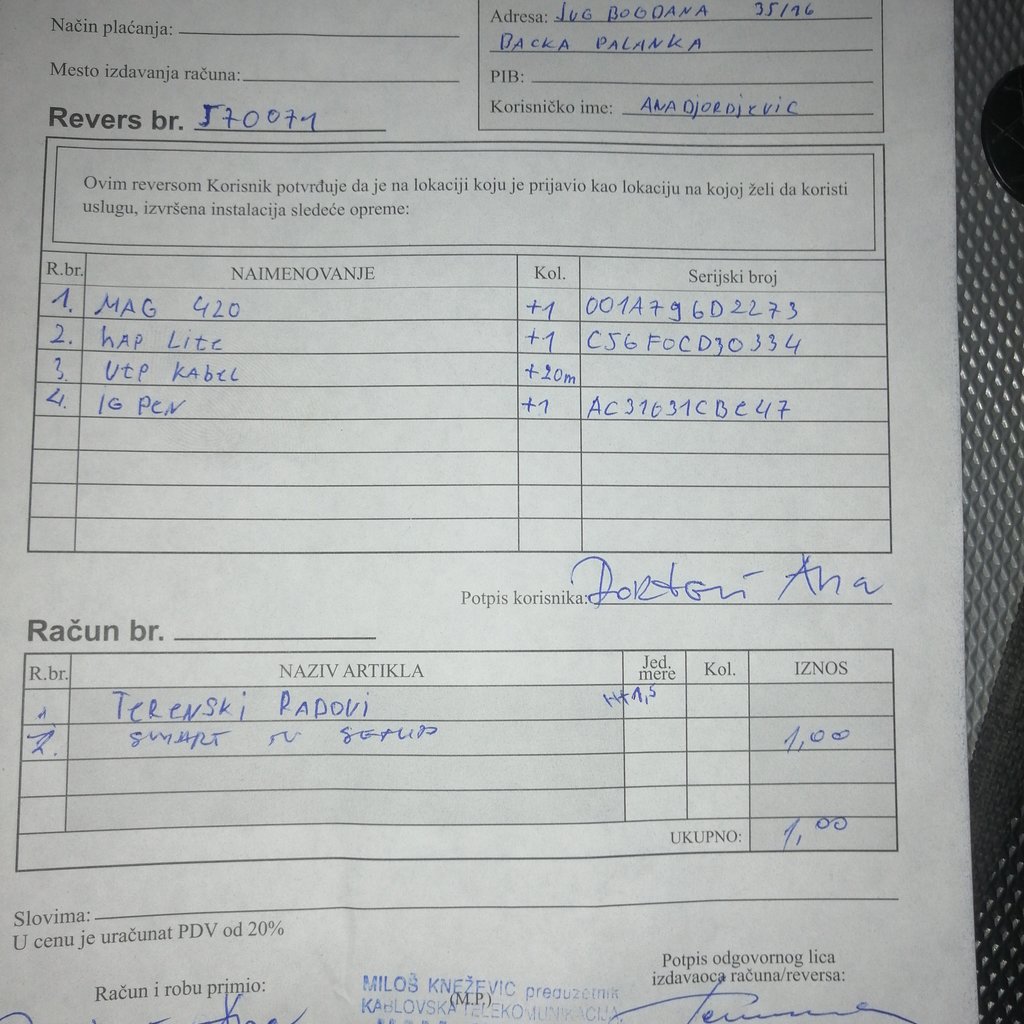 Adresa: JUG BOGDANA 35/16
Način plaćanja:
BACKA PALANKA
Mesto izdavanja računa:
PIB:
Korisničko ime: ANADJORDJEVIC
Revers br. 570071
Ovim reversom Korisnik potvrđuje da je na lokaciji koju je prijavio kao lokaciju na kojoj želi da koristi
uslugu, izvršena instalacija sledeće opreme:
R.br. NAIMENOVANJE Kol. Serijski broj
1. MAG 420 +1 001A796D2273
2. hAP Lite +1 C56F0CD30334
3. UTP KABEL +20m
4. IG PEN +1 AC31631CBE47
Potpis korisnika: Ana
Račun br.
R.br. NAZIV ARTIKLA Jed. mere Kol. IZNOS
1 TERENSKI RADOVI 1,5
2. SMART TV SETUP 1,00
UKUPNO: 1,00
Slovima:
U cenu je uračunat PDV od 20%
Potpis odgovornog lica
izdavaoca računa/reversa:
Račun i robu primio:
MILOŠ KNEŽEVIĆ preduzetnik
(M.P.)
KABLOVSKA TELEKOMUNIKACIJA